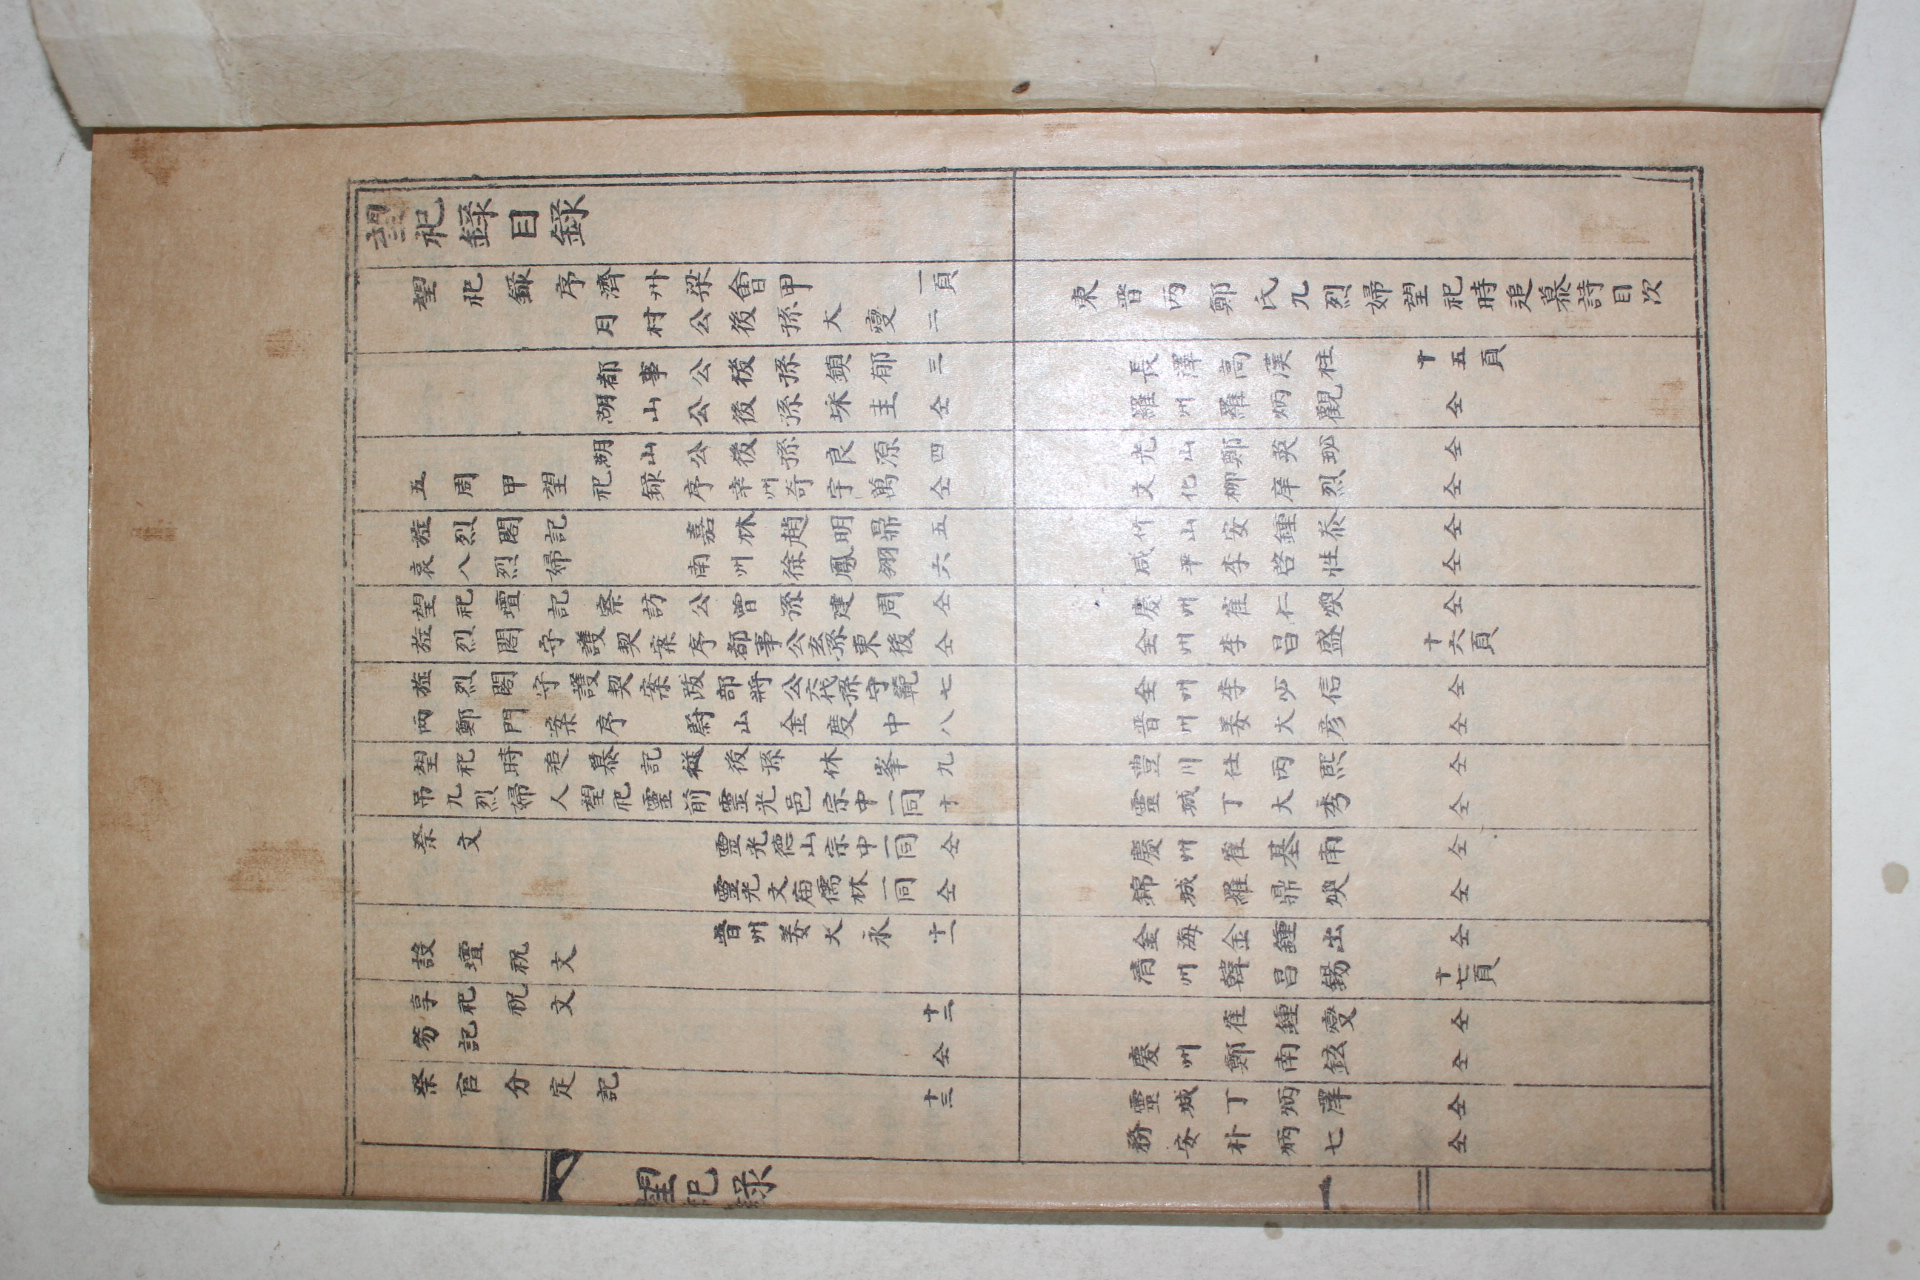 望祀錄目錄
望祀錄序 濟州梁會甲 一頁
月村公後孫大燮 二
都事公後孫鎮郁 三
湖山公後孫珠圭 仝
湖山公後孫良源 四
五周甲望祀錄序 幸州奇宇萬 仝
旌烈閣記 嘉林趙明鼎 五
哀八烈婦 南州徐鳳翎 六
望祀壇記 察訪公曾孫建周 仝
旌烈閣守護契案序 都事公玄孫東後 仝
旌烈閣守護契案跋 部將公六代孫守範 七
兩鄭門案序 蔚山金度中 八
望祀時追慕記 從後孫休峯 九
吊九烈婦人望祀靈前 靈光邑宗中一同 十
祭文 靈光德山宗中一同 仝
靈光文庙儒林一同 仝
設壇祝文 晋州姜大永 十一
享祀祝文 十二
笏記 仝
祭官分定記 十三
東晋丙鄭氏九烈婦望祀時追慕詩目次
長澤高漢柱 十五頁
羅州羅炳觀 仝
光山鄭英
文化柳庠烈 仝
竹山安鍾泰 仝
咸平李啓性 仝
慶州崔仁煥 仝
全州李昌盛 十六頁
全州李少信 仝
晋州姜大彦 仝
豊川任丙熙 仝
靈城丁大秀 仝
慶州崔基南 仝
錦城羅鼎煥 仝
金海金鍾出 仝
清州韓昌錫 十七頁
崔鍾燮 仝
慶州鄭南鉉 仝
靈城丁炳澤 仝
務安朴炳七 仝
望祀錄
一